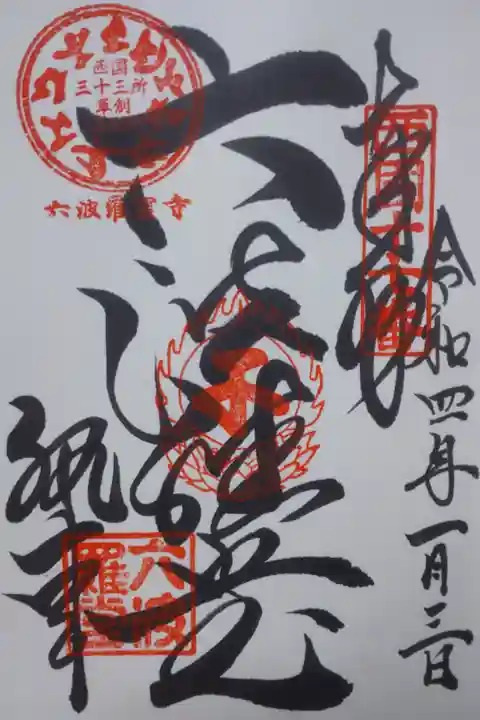 奉拝
令和四年一月三日
西国十七番
六波羅堂
六波羅蜜寺
西国
三十三所
草創
六波
羅蜜